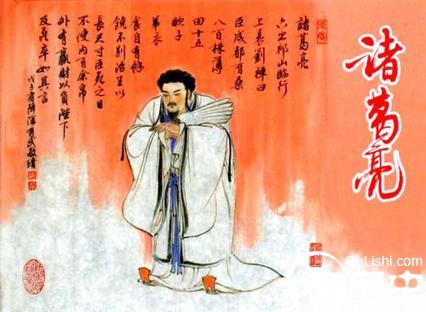 諸葛亮
諸葛亮
六出祁山臨行
上表劉禪曰
臣成都有桑
八百株薄
田十五
頃子
弟衣
食自有餘
饒不別治生以
長尺寸臣死之日
不使内有餘帛
外有贏財以負陛下
及死卒如其言
uLishi.com